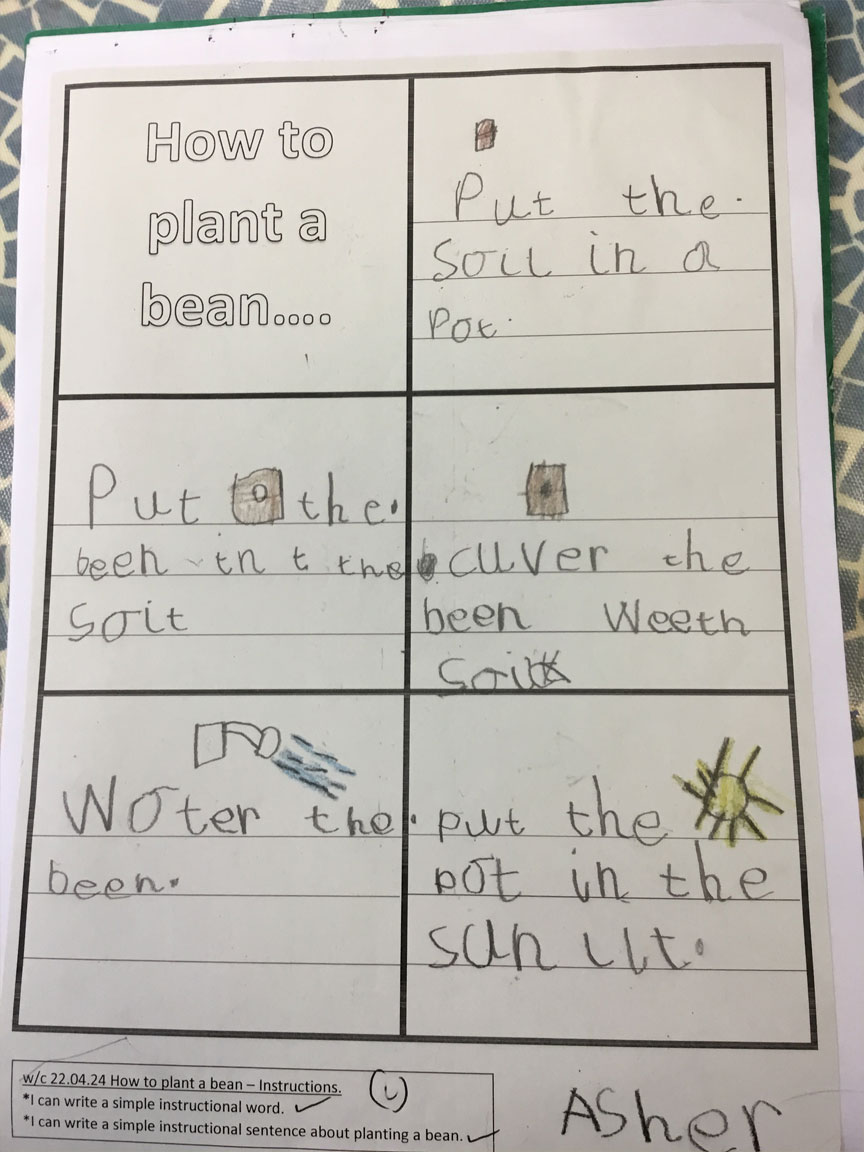 How to
plant a
bean....
Put the.
Soil in a
Pot.
Put the.
been in t the
Soit
cuver the
been Weeth
Soil
Woter the.
been.
put the
pot in the
sun lit.
w/c 22.04.24 How to plant a bean – Instructions.
*I can write a simple instructional word.
*I can write a simple instructional sentence about planting a bean.
ASher